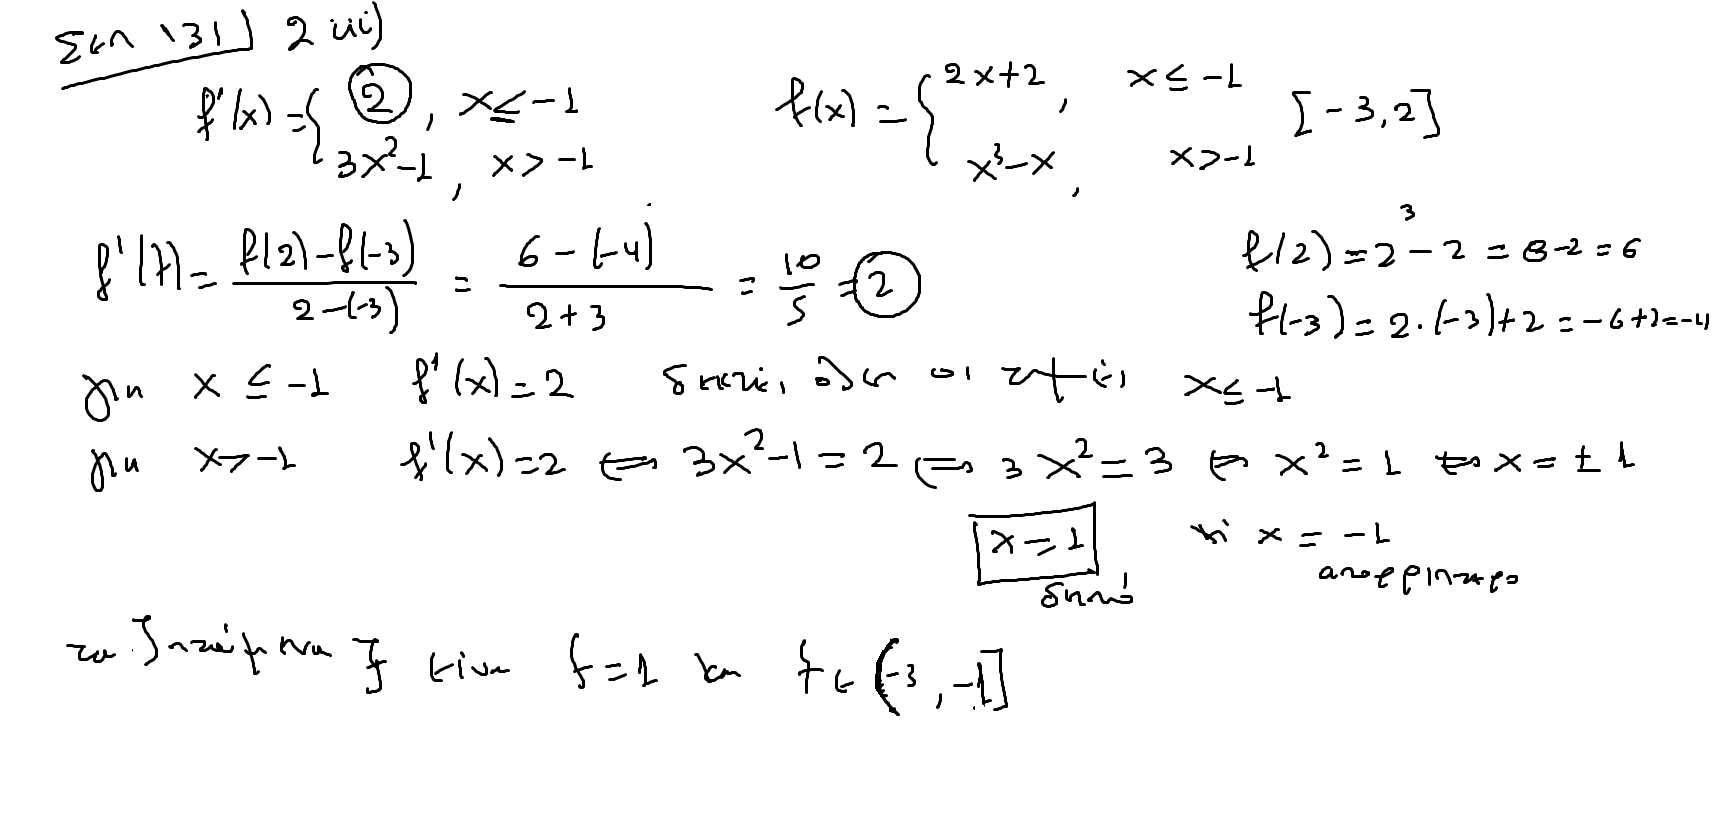 Σελ 131] 2 iii)
f'(x) = { 2, x ≤ -1
3x²-1, x > -1
f(x) = { 2x+2, x ≤ -1
x³-x, x > -1
[-3,2]
f'(ξ) = (f(2)-f(-3))/(2-(-3)) = (6-(-4))/(2+3) = 10/5 = 2
f(2) = 2³ - 2 = 8-2 = 6
f(-3) = 2·(-3)+2 = -6+2 = -4
για x ≤ -1 f'(x) = 2 δεκτές όλες οι τιμές x ≤ -1
για x > -1 f'(x) = 2 ⇔ 3x²-1 = 2 ⇔ 3x² = 3 ⇔ x² = 1 ⇔ x = ±1
x = 1 ή x = -1
δεκτό απορρίπτεται
τα ζητούμενα ξ είναι ξ = 1 και ξ ∈ (-3, -1]